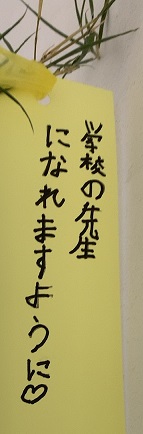 学校の先生
になれますように♡